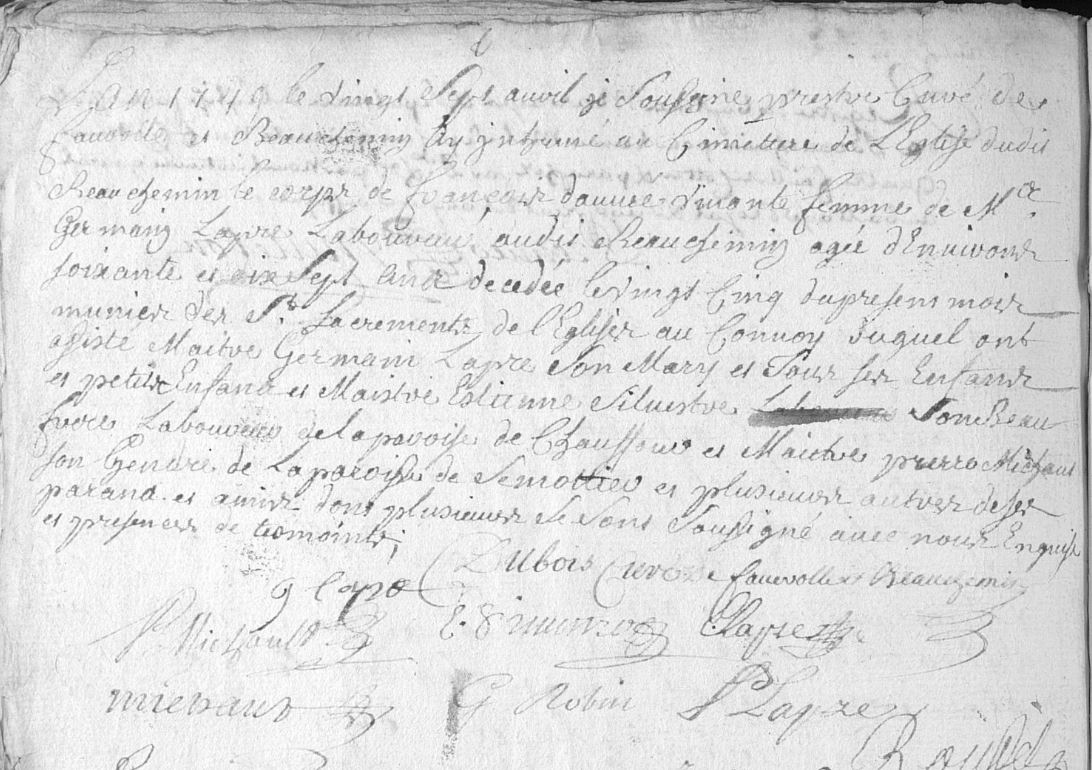 L'An 1749 le vingt Sept avril je Soussigne prestre Curé de
fauvolle et Beauchemin ay inhumé au Cimettere de L'Eglise dudit
Beauchemin le corps de françoise davure vivante femme de M.e
Germain Lapre Laboureur audit Beauchemin agée d'Environt
soixante et dix Sept Ans decedée le vingt Cinq du present mois
munier des S.t Sacrements de l'Eglise au Convoy duquel ont
assiste Maitre Germain Lapre Son Mary et Tous ses Enfans
et petits Enfans et Maistre Estienne Siluestre Son Beau
frere Laboureur de la paroisse de Chauffour et Maitre pierre Michaut
son Gendre de La paroisse de Semottier et plusieurs autres de ses
parans et amies dont plusieurs Se Sont Soussigné avec nous En quise
et presences de temoints,
DUbois Cure de fauvolle et Beauchemin
g lapre
P Michault E. Simonnot C Lapre
michaut G Robin P Lapre